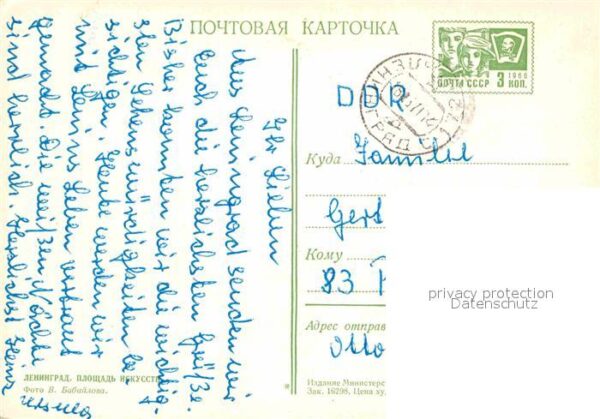 ПОЧТОВАЯ КАРТОЧКА
1966
ПОЧТА СССР 3 КОП.
Ihr Lieben
Aus Leningrad senden wir
Euch die herzlichsten Grüße.
Bisher konnten wir die wichtig-
sten Sehenswürdigkeiten be-
sichtigen. Heute werden wir
mit Lenins Leben vertraut
gemacht. Die weißen Nächte
sind herrlich. Herzlichst Heinz
DDR
Куда Familie
Gert
Кому
83
privacy protection
Datenschutz
Адрес отправ
Otto
ЛЕНИНГРАД. ПЛОЩАДЬ ИСКУССТВ
Фото В. Бабайлова.
Издание Министерс
Зак. 16298. Цена